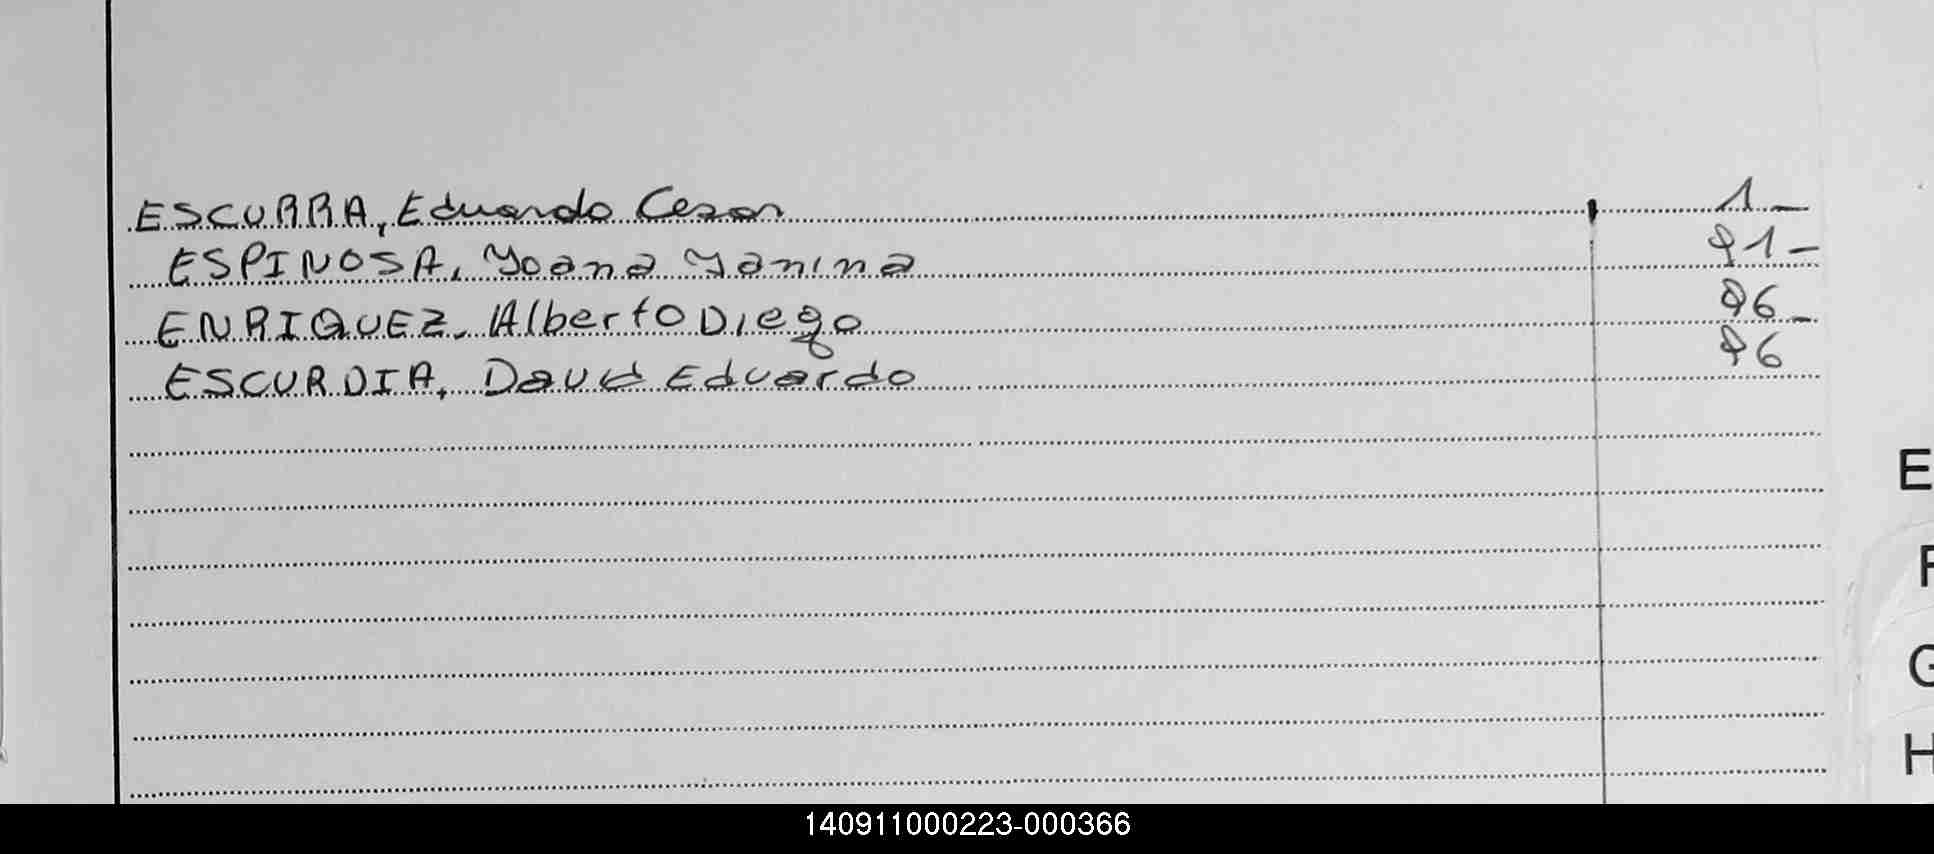 ESCURRA, Eduardo Cesar 1_
ESPINOSA, Yoana Yanina 91-
ENRIQUEZ, Alberto Diego 96_
ESCURDIA, David Eduardo 96
E
F
G
H
140911000223-000366